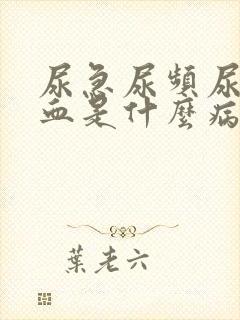 尿急尿頻尿
血是什麼病
葉老六